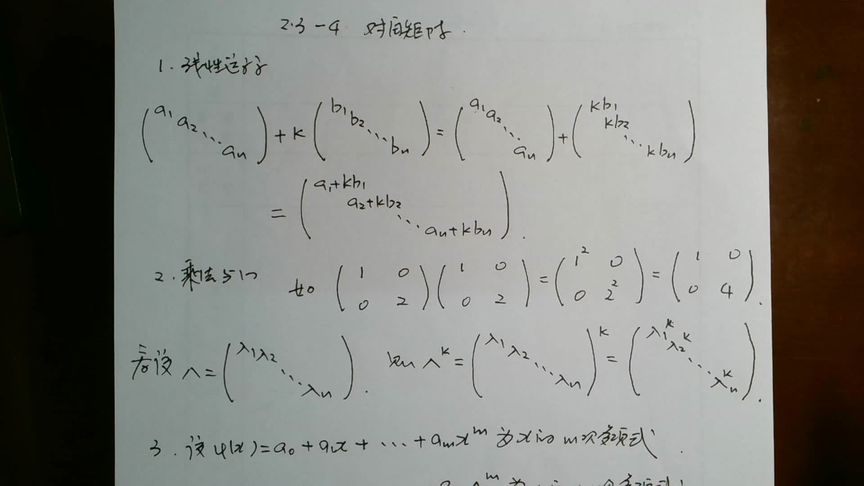 2.3-4 对角矩阵.
1. 线性运算
(a1 a2 ⋱ an) + k (b1 b2 ⋱ bn) = (a1 a2 ⋱ an) + (kb1 kb2 ⋱ kbn)
= (a1+kb1 a2+kb2 ⋱ an+kbn).
2. 乘法与 如 (1 0 0 2) (1 0 0 2) = (1² 0 0 2²) = (1 0 0 4).
若设 Λ = (λ1 λ2 ⋱ λn). 则 Λ^k = (λ1 λ2 ⋱ λn)^k = (λ1^k λ2^k ⋱ λn^k).
3. 设 φ(x) = a0 + a1x + ⋯ + amx^m 为x的m次多项式.